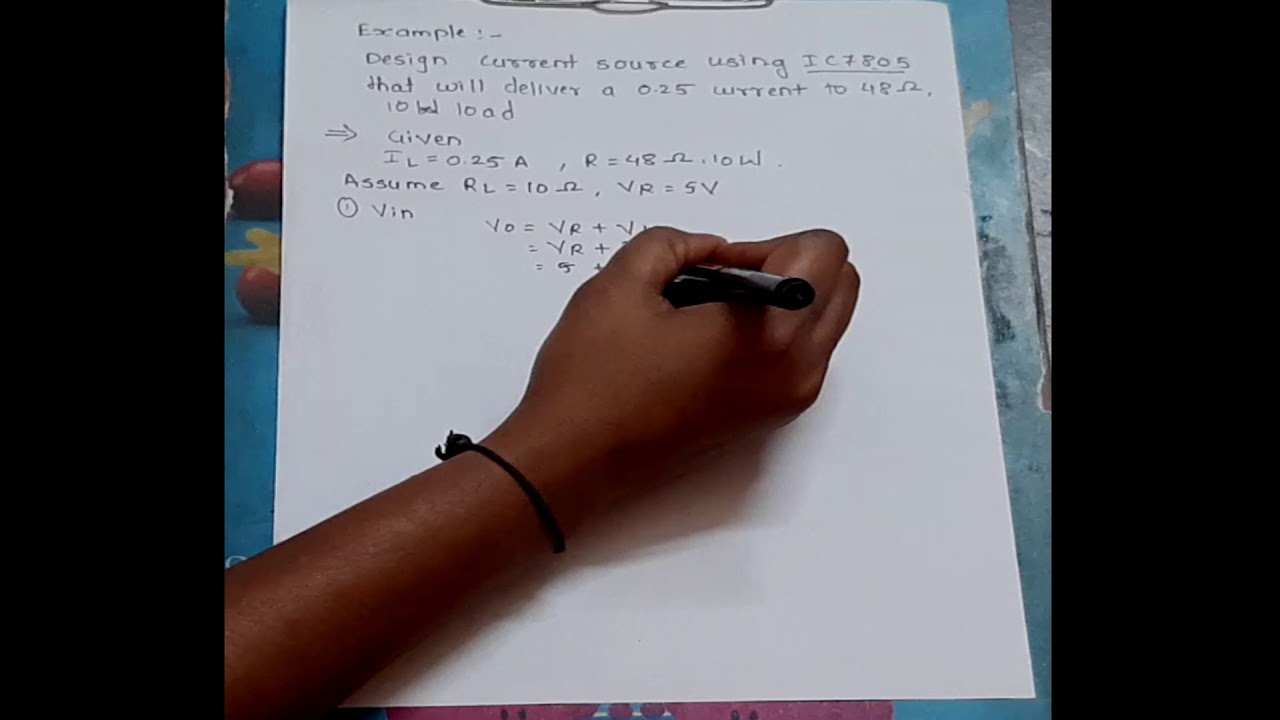 Example :-
Design current source using IC7805
that will deliver a 0.25 current to 48Ω,
10 load
⇒ Given
IL = 0.25 A , R = 48 Ω . 10W .
Assume RL = 10 Ω , VR = 5V
① Vin
VO = VR +
= VR +
= 5 +